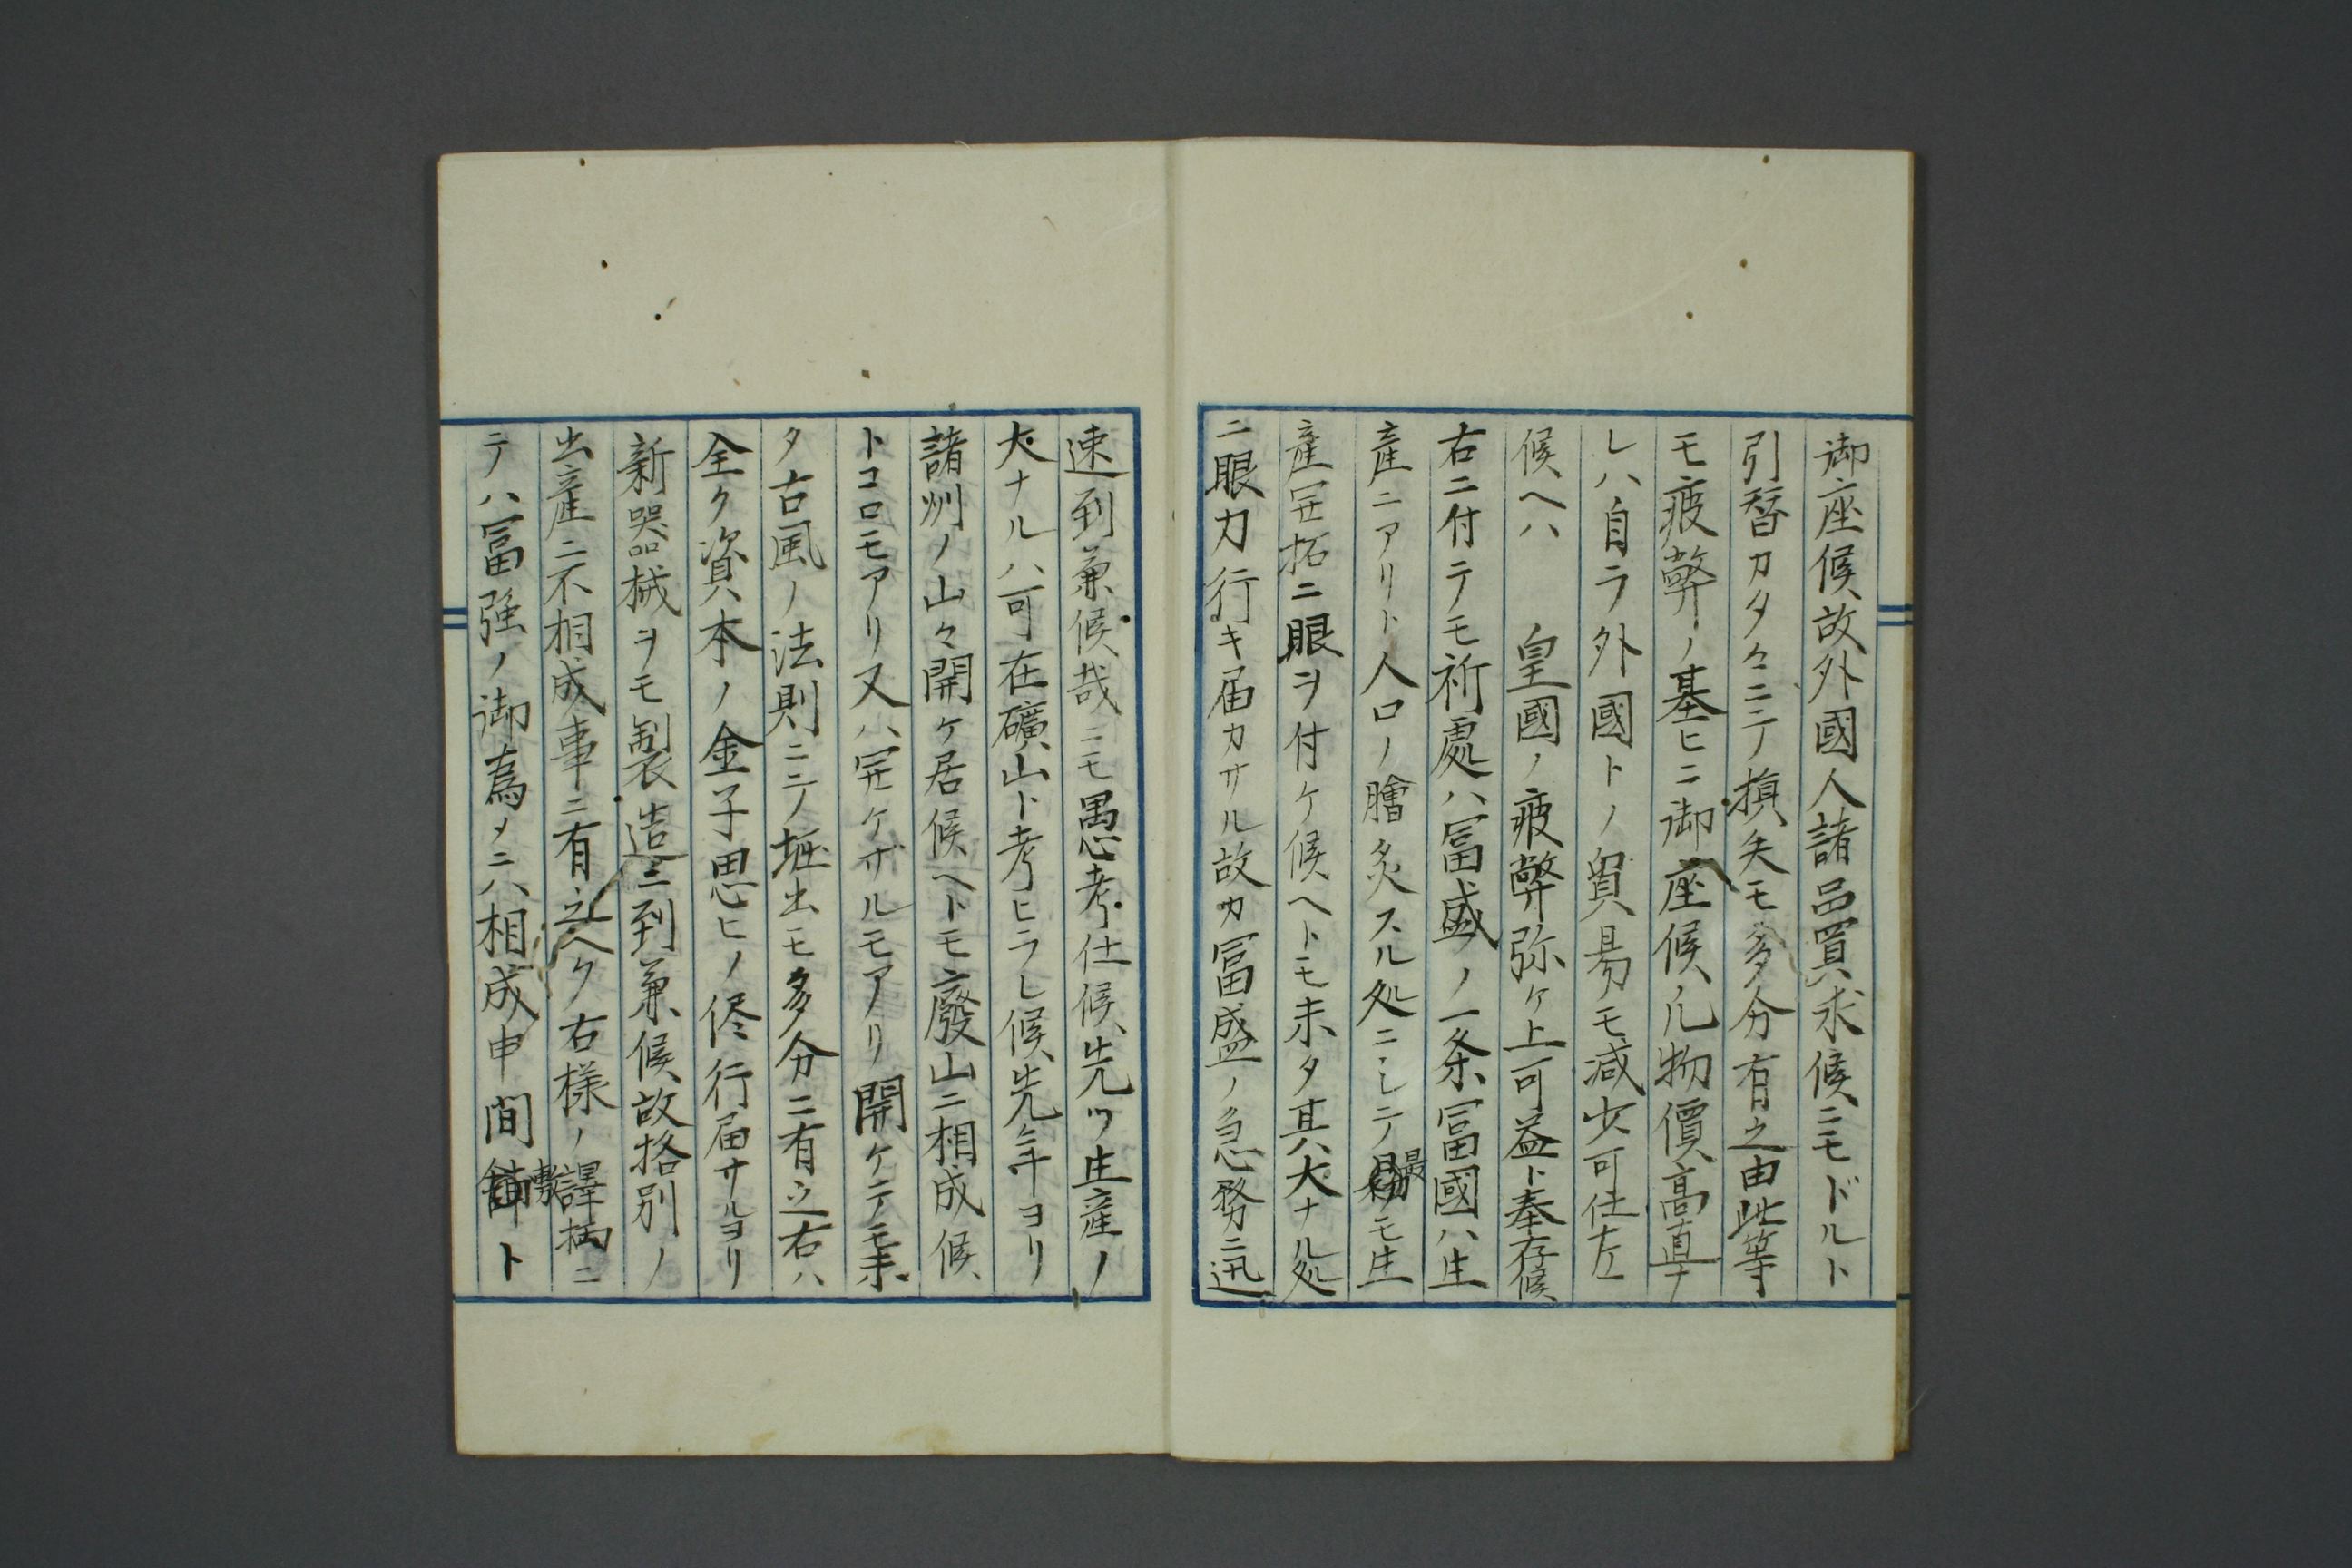 御座候故外國人諸品買求候ニモドルト
引替カタクニテ損失モ多分有之由此等
モ疲弊ノ基ヒニ御座候凡物價高直ナ
レハ自ラ外國トノ貿易モ減少可仕左
候ヘハ　皇國ノ疲弊弥ケ上可益ト奉存候
右ニ付テモ祈處ハ冨盛ノ一条冨國ハ生
産ニアリト人口ノ膾炙スル処ニシテ最モ生
産開拓ニ眼ヲ付ケ候ヘトモ未タ其大ナル処
ニ眼力行キ届カサル故カ冨盛ノ急務ニ迅
速到兼候哉ニモ愚考仕候先ツ生産ノ
大ナルハ可在礦山ト考ヒラレ候先年ヨリ
諸州ノ山々開ケ居候ヘトモ廢山ニ相成候
トコロモアリ又ハ開ケザルモアリ開ケテモ未
タ古風ノ法則ニテ堀出モ多分ニ有之右ハ
全ク資本ノ金子思ヒノ侭行届サルヨリ
新器械ヲモ製造ニ到兼候故格別ノ
出産ニ不相成事ニ有之ヘク右様ノ譯柄ニ
テハ冨強ノ御為メニハ相成申間敷ト